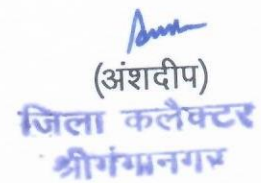 (अंशदीप)
जिला कलैक्टर
श्रीगंगानगर